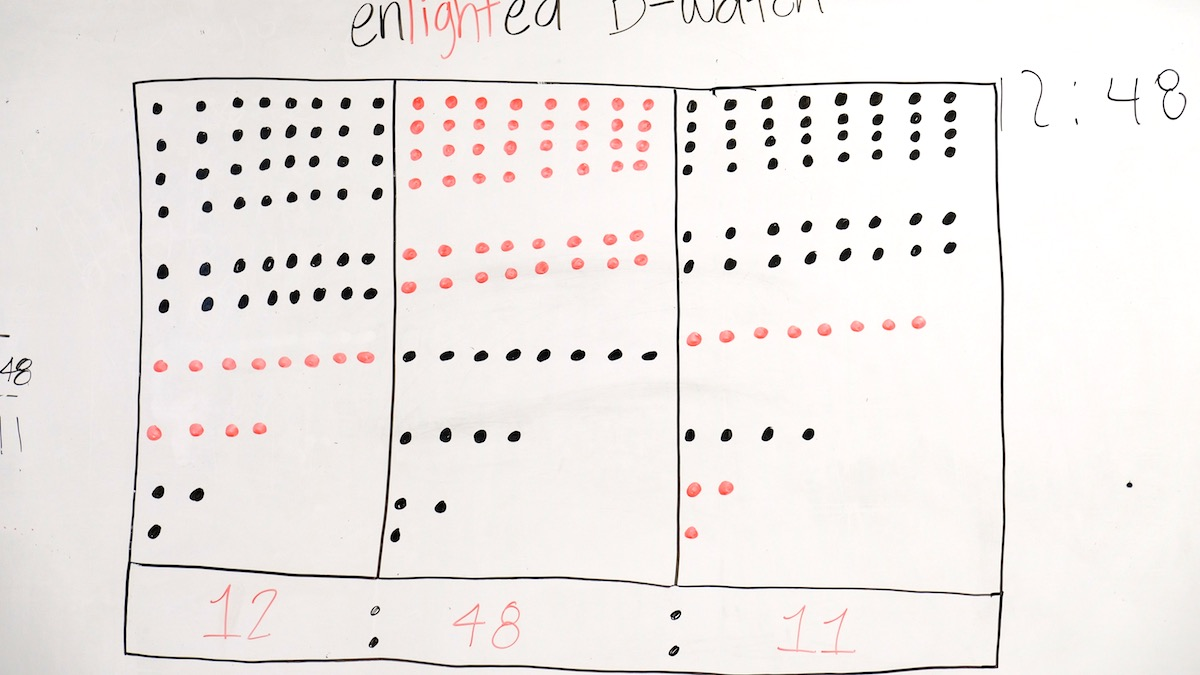 enlighted D-Watch
12:48
48
11
12 : 48 : 11